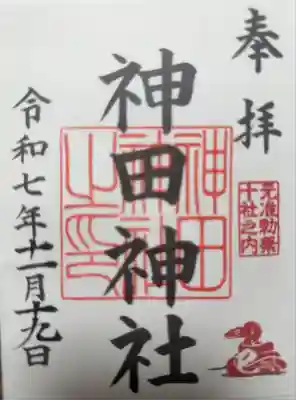 奉拝
元准勅祭
十社之内
神田神社
神田
神社
之印
令和七年十一月十九日